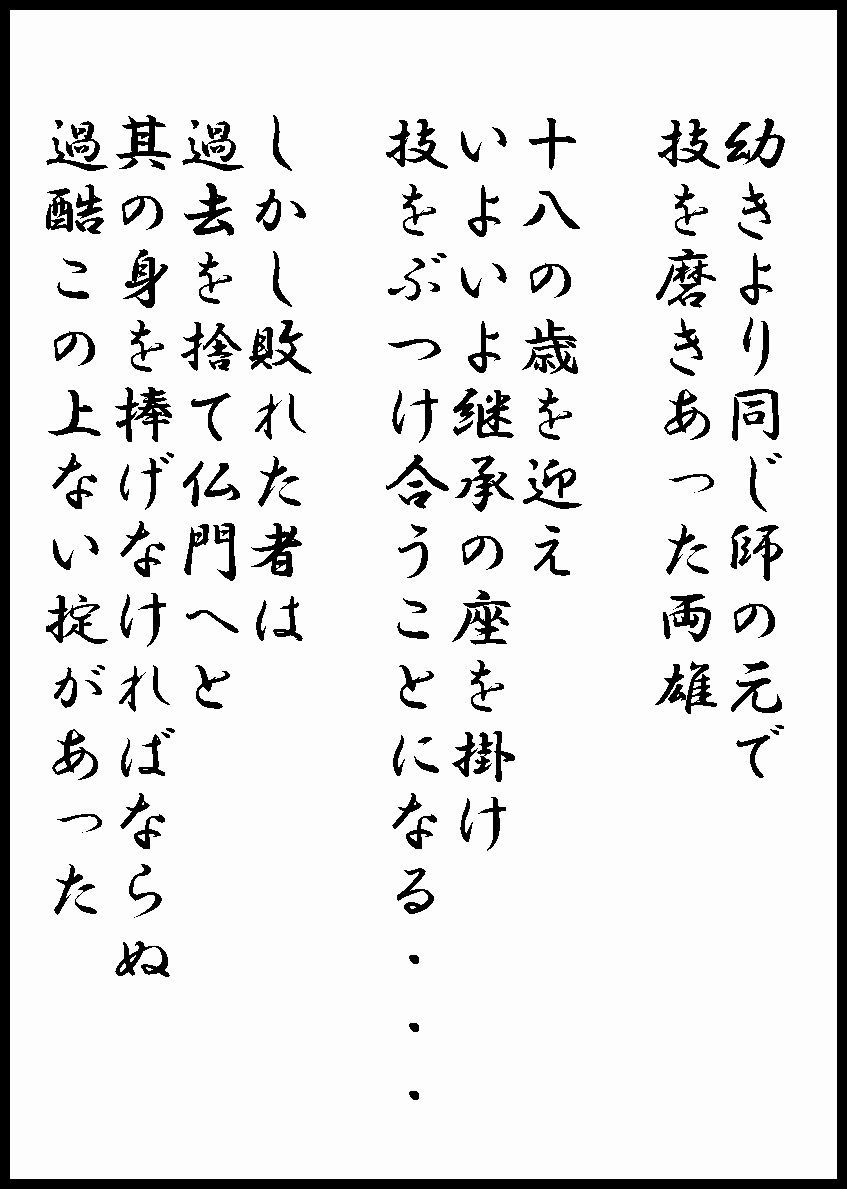 幼きより同じ師の元で
技を磨きあった両雄
十八の歳を迎え
いよいよ継承の座を掛け
技をぶつけ合うことになる・・・
しかし敗れた者は
過去を捨て仏門へと
其の身を捧げなければならぬ
過酷この上ない掟があった